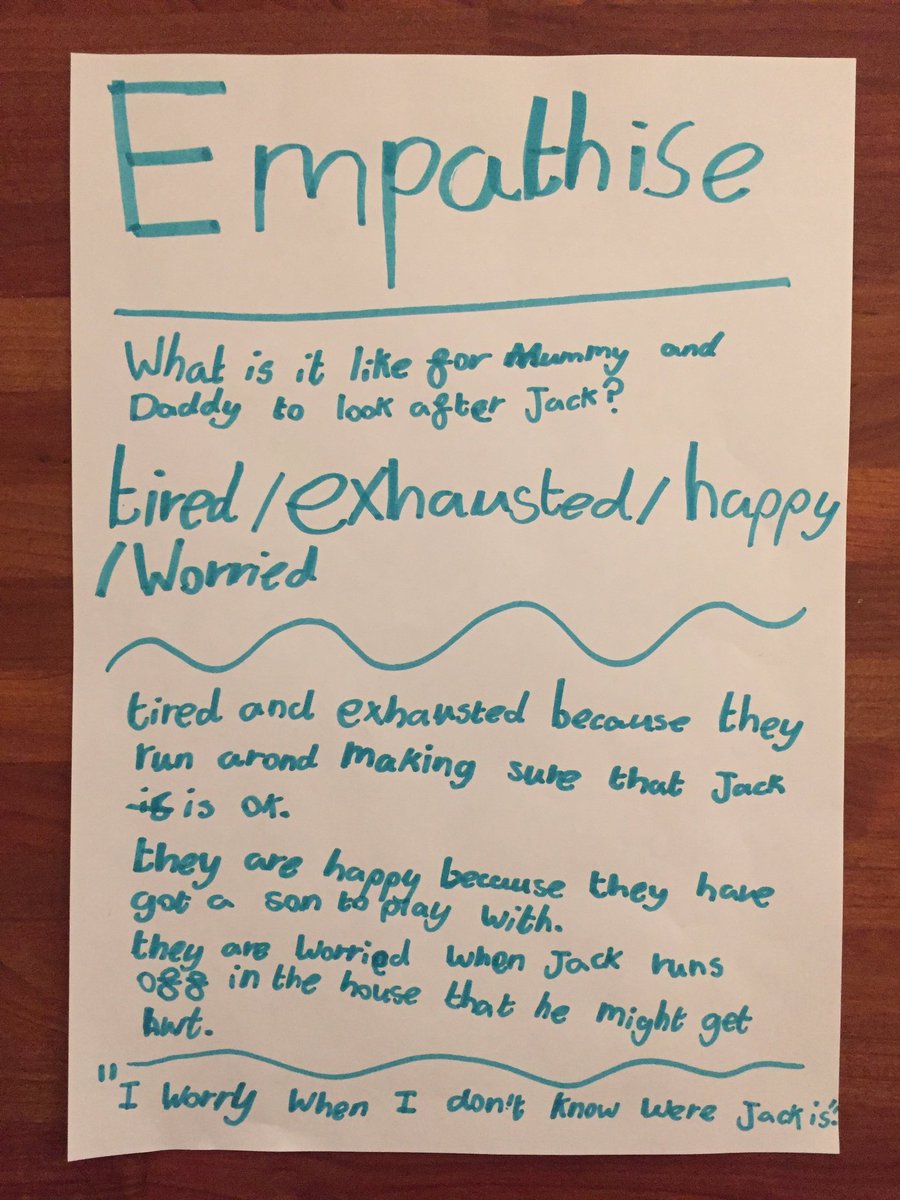 Empathise
What is it like for Mummy and
Daddy to look after Jack?
tired/exhausted/happy
/Worried
tired and exhausted because they
run arond making sure that Jack
is ok.
they are happy because they have
got a son to play with.
they are worried when Jack runs
off in the house that he might get
hurt.
"I Worry when I don't know were Jack is."